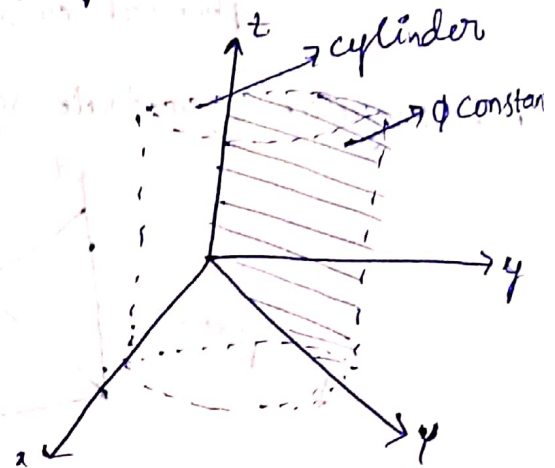 z
cylinder
ϕ constan
y
ψ
x